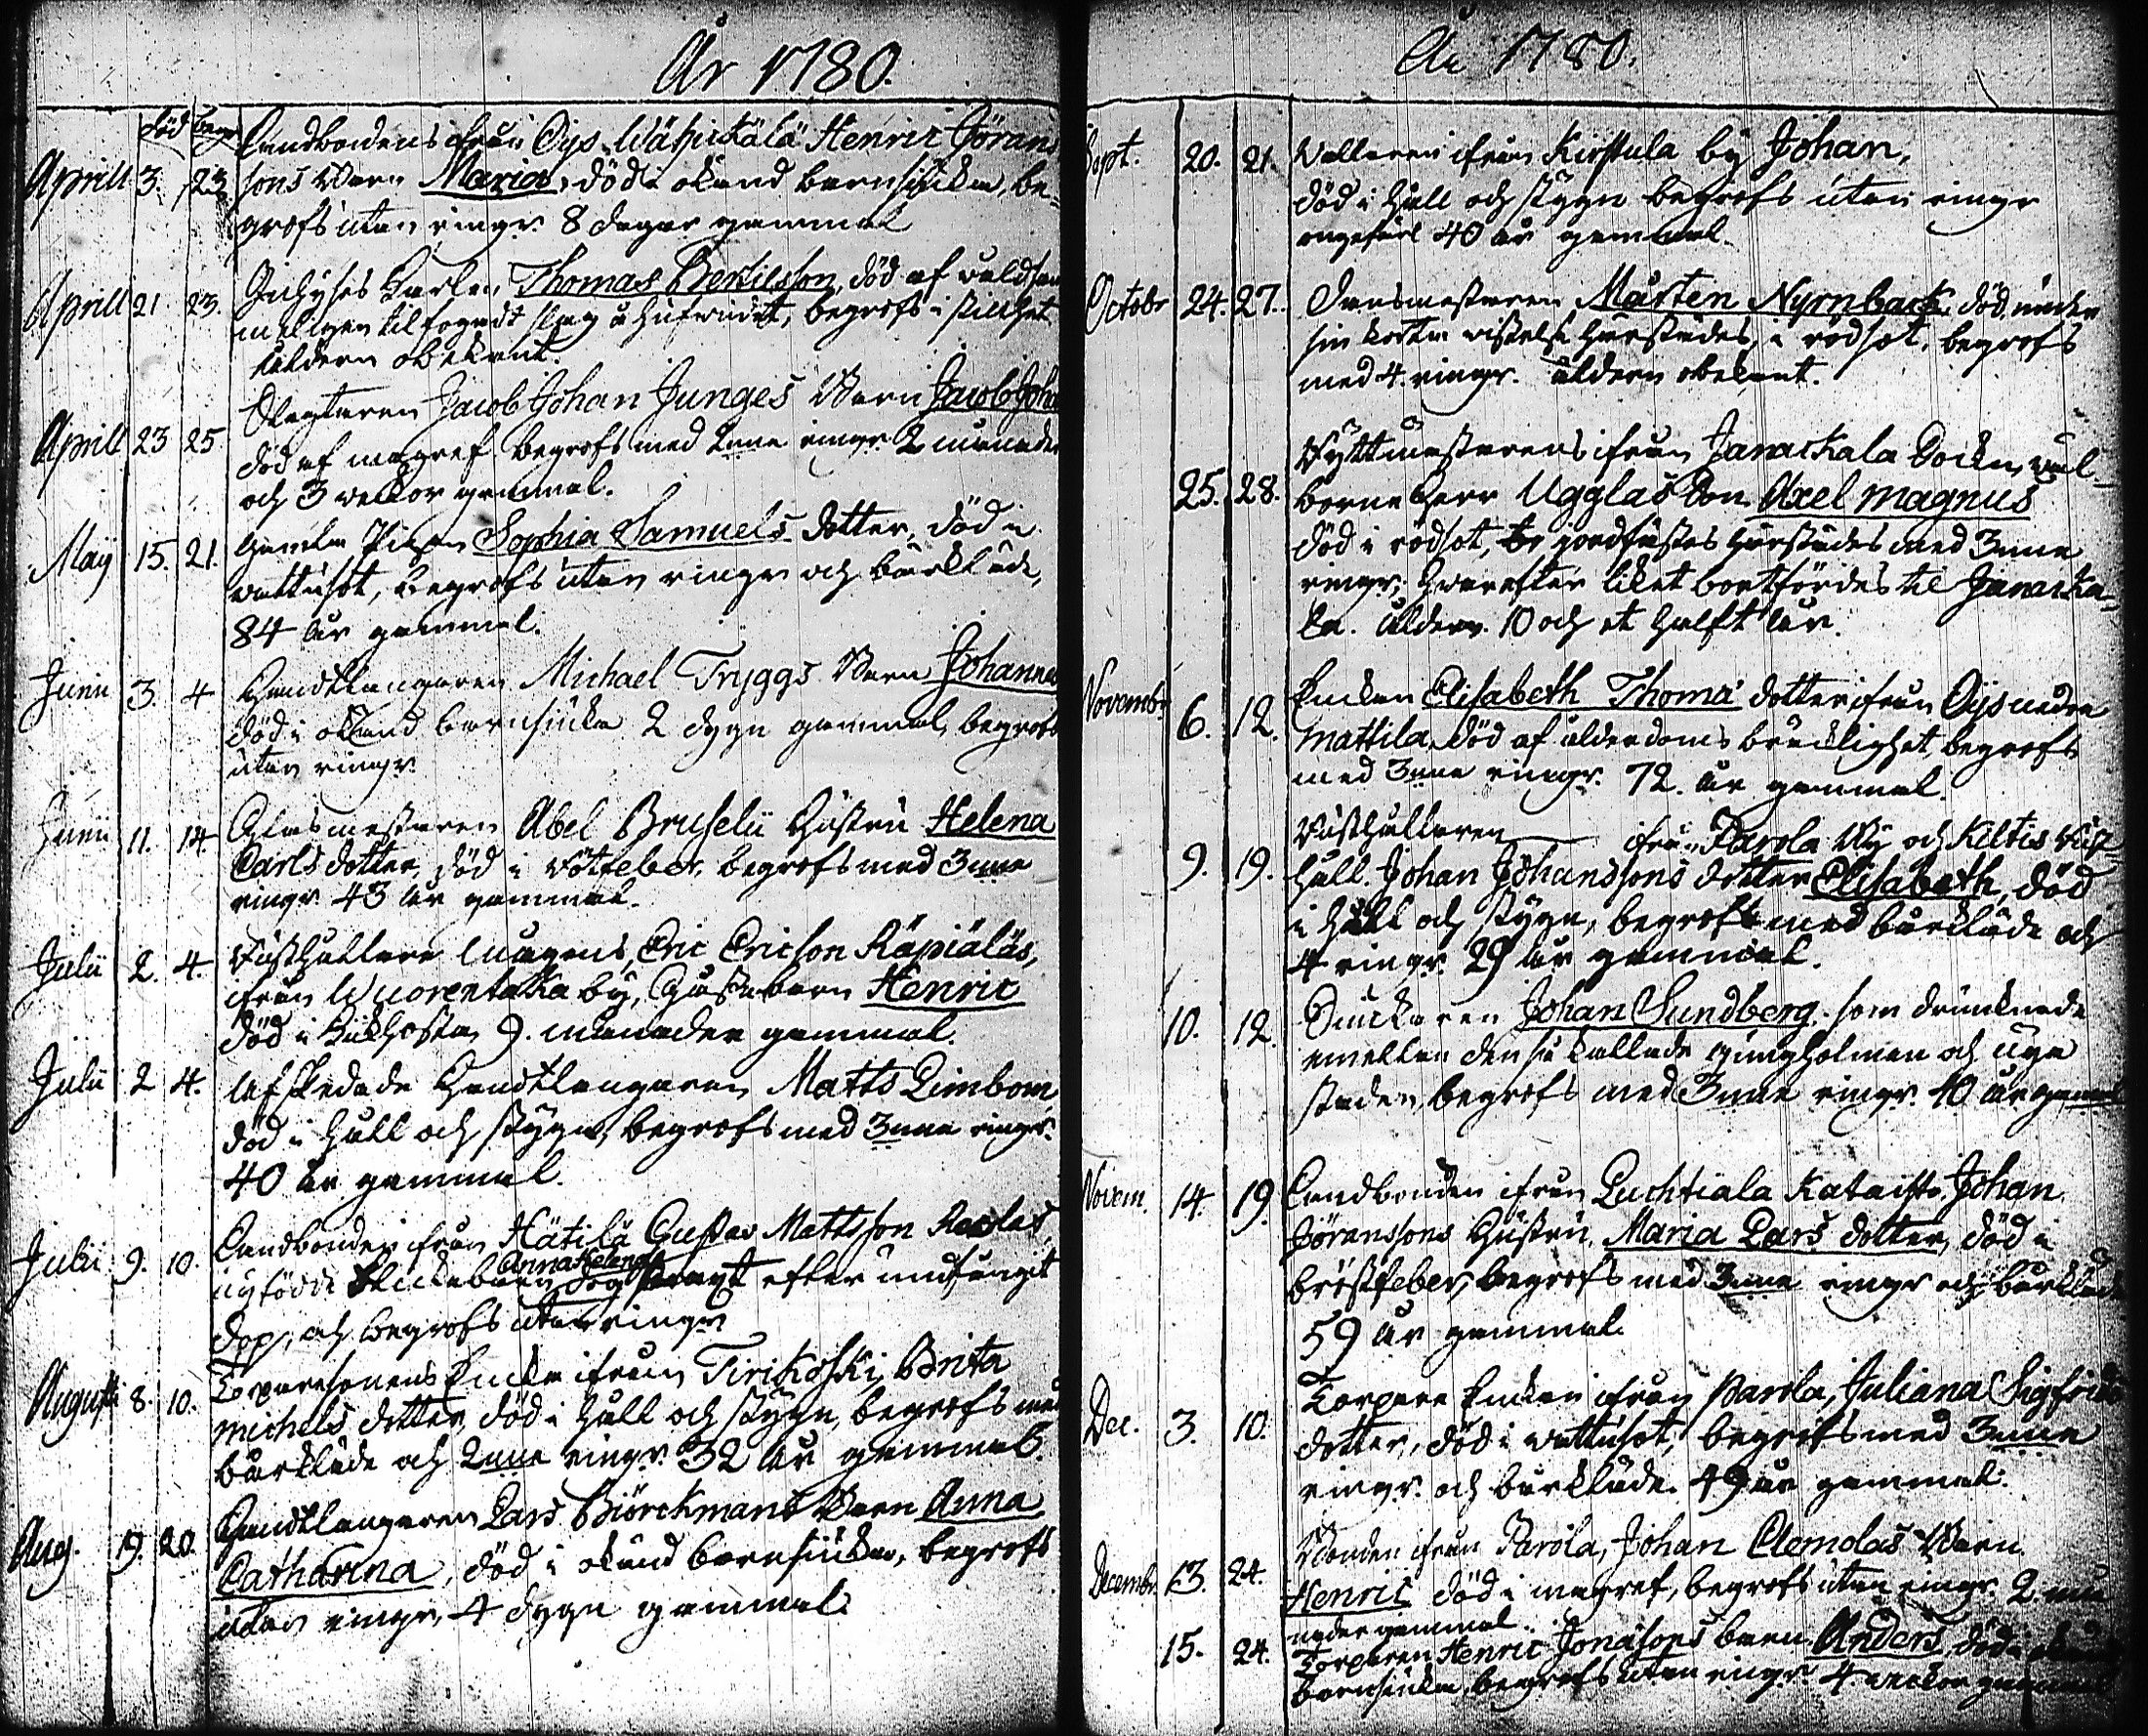 År 1780.
död begr
Landbondens ifrån Ojs Wähickälä Henric Görans
Aprill 3. 23 sons Barn Maria, död i okänd barnsjuka, be-
grofs utan ringn. 8 dagar gammal
Aprill 21 23. Inhyses Karlen Thomas Bertilsson, död af våldsam
tilfogadt slag å hufwudet, begrofs i stillhet
åldern obekant.
Aprill 23 25 Jacob Johan Junges Barn Jacob Joha
död af magref begrofs med 2nne ringn. 2 månader
och 3 weckor gammal.
May 15. 21. Gamla Pigan Sophia Samuels dotter, död i
wattusot, begrofs utan ringn och bårkläde,
84 år gammal.
Junii 3. 4 Handtlangaren Michael Tryggs Barn Johannes
död i okänd barnsjuka 2 dygn gammal, begrofs
utan ringn.
Junii 11. 14 Glasmestaren Abel Bruselii Hustru Helena
Carls dotter, död i rötfeber, begrofs med 3nne
ringn. 43 år gammal.
Julii 2. 4. Rusthållare mågens, Eric Ericson Räpiäläs,
ifrån Wuorentaka by, Gossebarn Henric
död i Kikhosta 9. månader gammal.
Julii 2 4. Afskedade Handtlangaren Matts Limbom,
död i håll och stygn, begrofs med 3nne ringn.
40 år gammal.
Julii 9. 10. Landbonden ifrån Hätilä Gustav Mattsson
Anna Helena
nyfödda flickebarn dog straxt efter undfångit
dop, och begrofs utan ringn
Augusti 8. 10. Torparesonens Encka ifrån Tirikoski, Brita
Michels dotter, död i håll och stygn, begrofs med
bårkläde och 2nne ringn. 32 år gammal.
Aug. 19. 20. Handtlangaren Lars Biörckmans Barn Anna
Catharina, död i okänd barnsjuka, begrofs
utan ringn, 4 dygn gammal.
År 1780.
Sept. 20. 21. Vallaren ifrån Kirstula by Johan,
död i håll och stygn begrofs utan ringn
ongefärl 40 år gammal.
Octobr 24. 27. Dansmestaren Mårten Nyrnback, död under
sin korta wistelse härstädes, i rödsot, begrofs
med 4. ringn. åldern obekant.
Ryttmestarens ifrån Janackala Socken, wäl-
25. 28. borne Herr Ugglas Son Axel Magnus
död i rödsot, jordfästes härstädes med 3nne
ringn; hwarefter liket bortfördes til Janacka-
la. åldern. 10 och et halft år.
Novembr 6. 12. Enckan Elisabeth Thomæ dotter ifrån Ojs nedre
Mattila, död af ålderdoms bräcklighet, begrofs
med 3nne ringn. 72. år gammal.
Rusthållaren ifrån Parola By och Keltis Rust-
9. 19. håll. Johan Johanssons dotter Elisabeth, död
i håll och stygn, begrofs med bårkläde och
4 ringn. 29 år gammal.
10. 12. Johan Sundberg, som drunknade
emellan den så kallade och nya
staden, begrofs med 3nne ringn. 40 år gammal
Novem. 14. 19. Landbonden ifrån Luchtiala Kataisto, Johan
Jöranssons Hustru, Maria Lars dotter, död i
bröstfeber, begrofs med 3nne ringn och bårkläde
59 år gammal.
Dec. 3. 10. Torpare Enckan ifrån Parola, Juliana Sigfrids
dotter, död i wattusot, begrofs med 3nne
ringn. och bårkläde. 49 år gammal.
Decembr. 13. 24. Bonden ifrån Parola, Johan Clemolas Barn
Henric död i magref, begrofs utan ringn. 2. må
nader gammal.
15. 24. Torparen Henric Jonasons barn Anders, död i okänd
barnsjuka, begrofs utan ringn. 4. weckor gammal